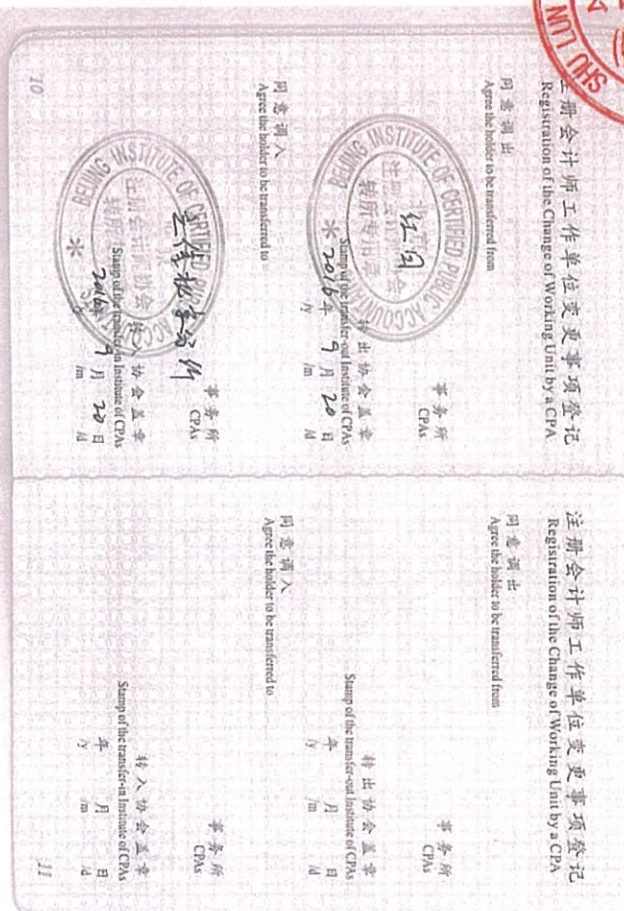 SHU LUN
注册会计师工作单位变更事项登记
Registration of the Change of Working Unit by a CPA
同意调出
Agree the holder to be transferred from
事务所
CPAs
BEIJING INSTITUTE OF CERTIFIED PUBLIC ACCOUNTANTS
转出协会盖章
Stamp of the transfer-out Institute of CPAs
2016年 9月 20日
/y /m /d
同意调入
Agree the holder to be transferred to
事务所
CPAs
BEIJING INSTITUTE OF CERTIFIED PUBLIC ACCOUNTANTS
注册会计师协会
转入协会盖章
Stamp of the transfer-in Institute of CPAs
2016年 9月 20日
/y /m /d
10
注册会计师工作单位变更事项登记
Registration of the Change of Working Unit by a CPA
同意调出
Agree the holder to be transferred from
事务所
CPAs
转出协会盖章
Stamp of the transfer-out Institute of CPAs
年 月 日
/y /m /d
同意调入
Agree the holder to be transferred to
事务所
CPAs
转入协会盖章
Stamp of the transfer-in Institute of CPAs
年 月 日
/y /m /d
11